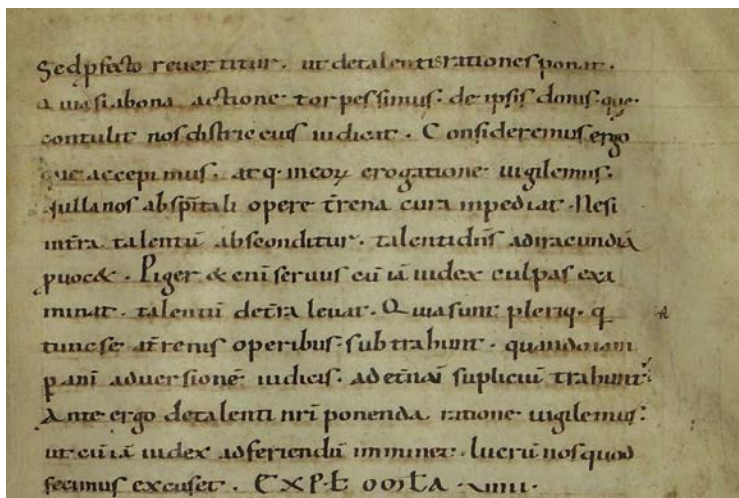 Sed pfecto reuertitur. ut detalentisrationesponat.
Quiasiabona actione torpessimus: de ipsis donis. que.
contulit nosdistrictius iudicat. Consideremusergo
que accepimus. atq. ineoꝝ erogatione uigilemus.
Nullanos abspītali opere tr̄rena cura inpediat. Nesi
int̄ra talentū absconditur. talentidn̄s adiracundiā
ꝓuocet. Piger & enī seruus cū iā iudex culpas exa
minat. talentū det̄ra leuat. Quiasunt pleriq. q
tuncse at̄renis operibus: subtrahunt. quandoiam
ꝑ anī aduersionē iudicis. adet̄naī supliciū trahunt:
Ante ergo detalenti nr̄i ponenda ratione uigilemus:
ut cū iā iudex adferiendū imminet. lucrū nosquod
fecimus excuset. EXPƚ